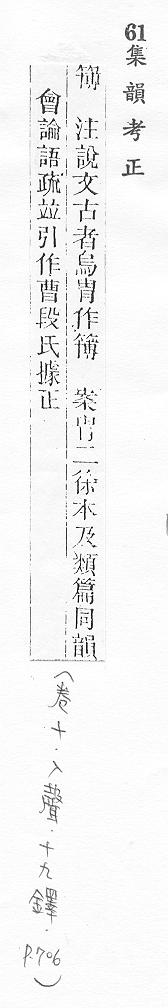 61集韻考正
簙　注說文古者烏冑作簙　案冑二徐本及類篇同韻
會論語疏並引作曹段氏據正
(卷十.入聲.十九鐸.P.706)